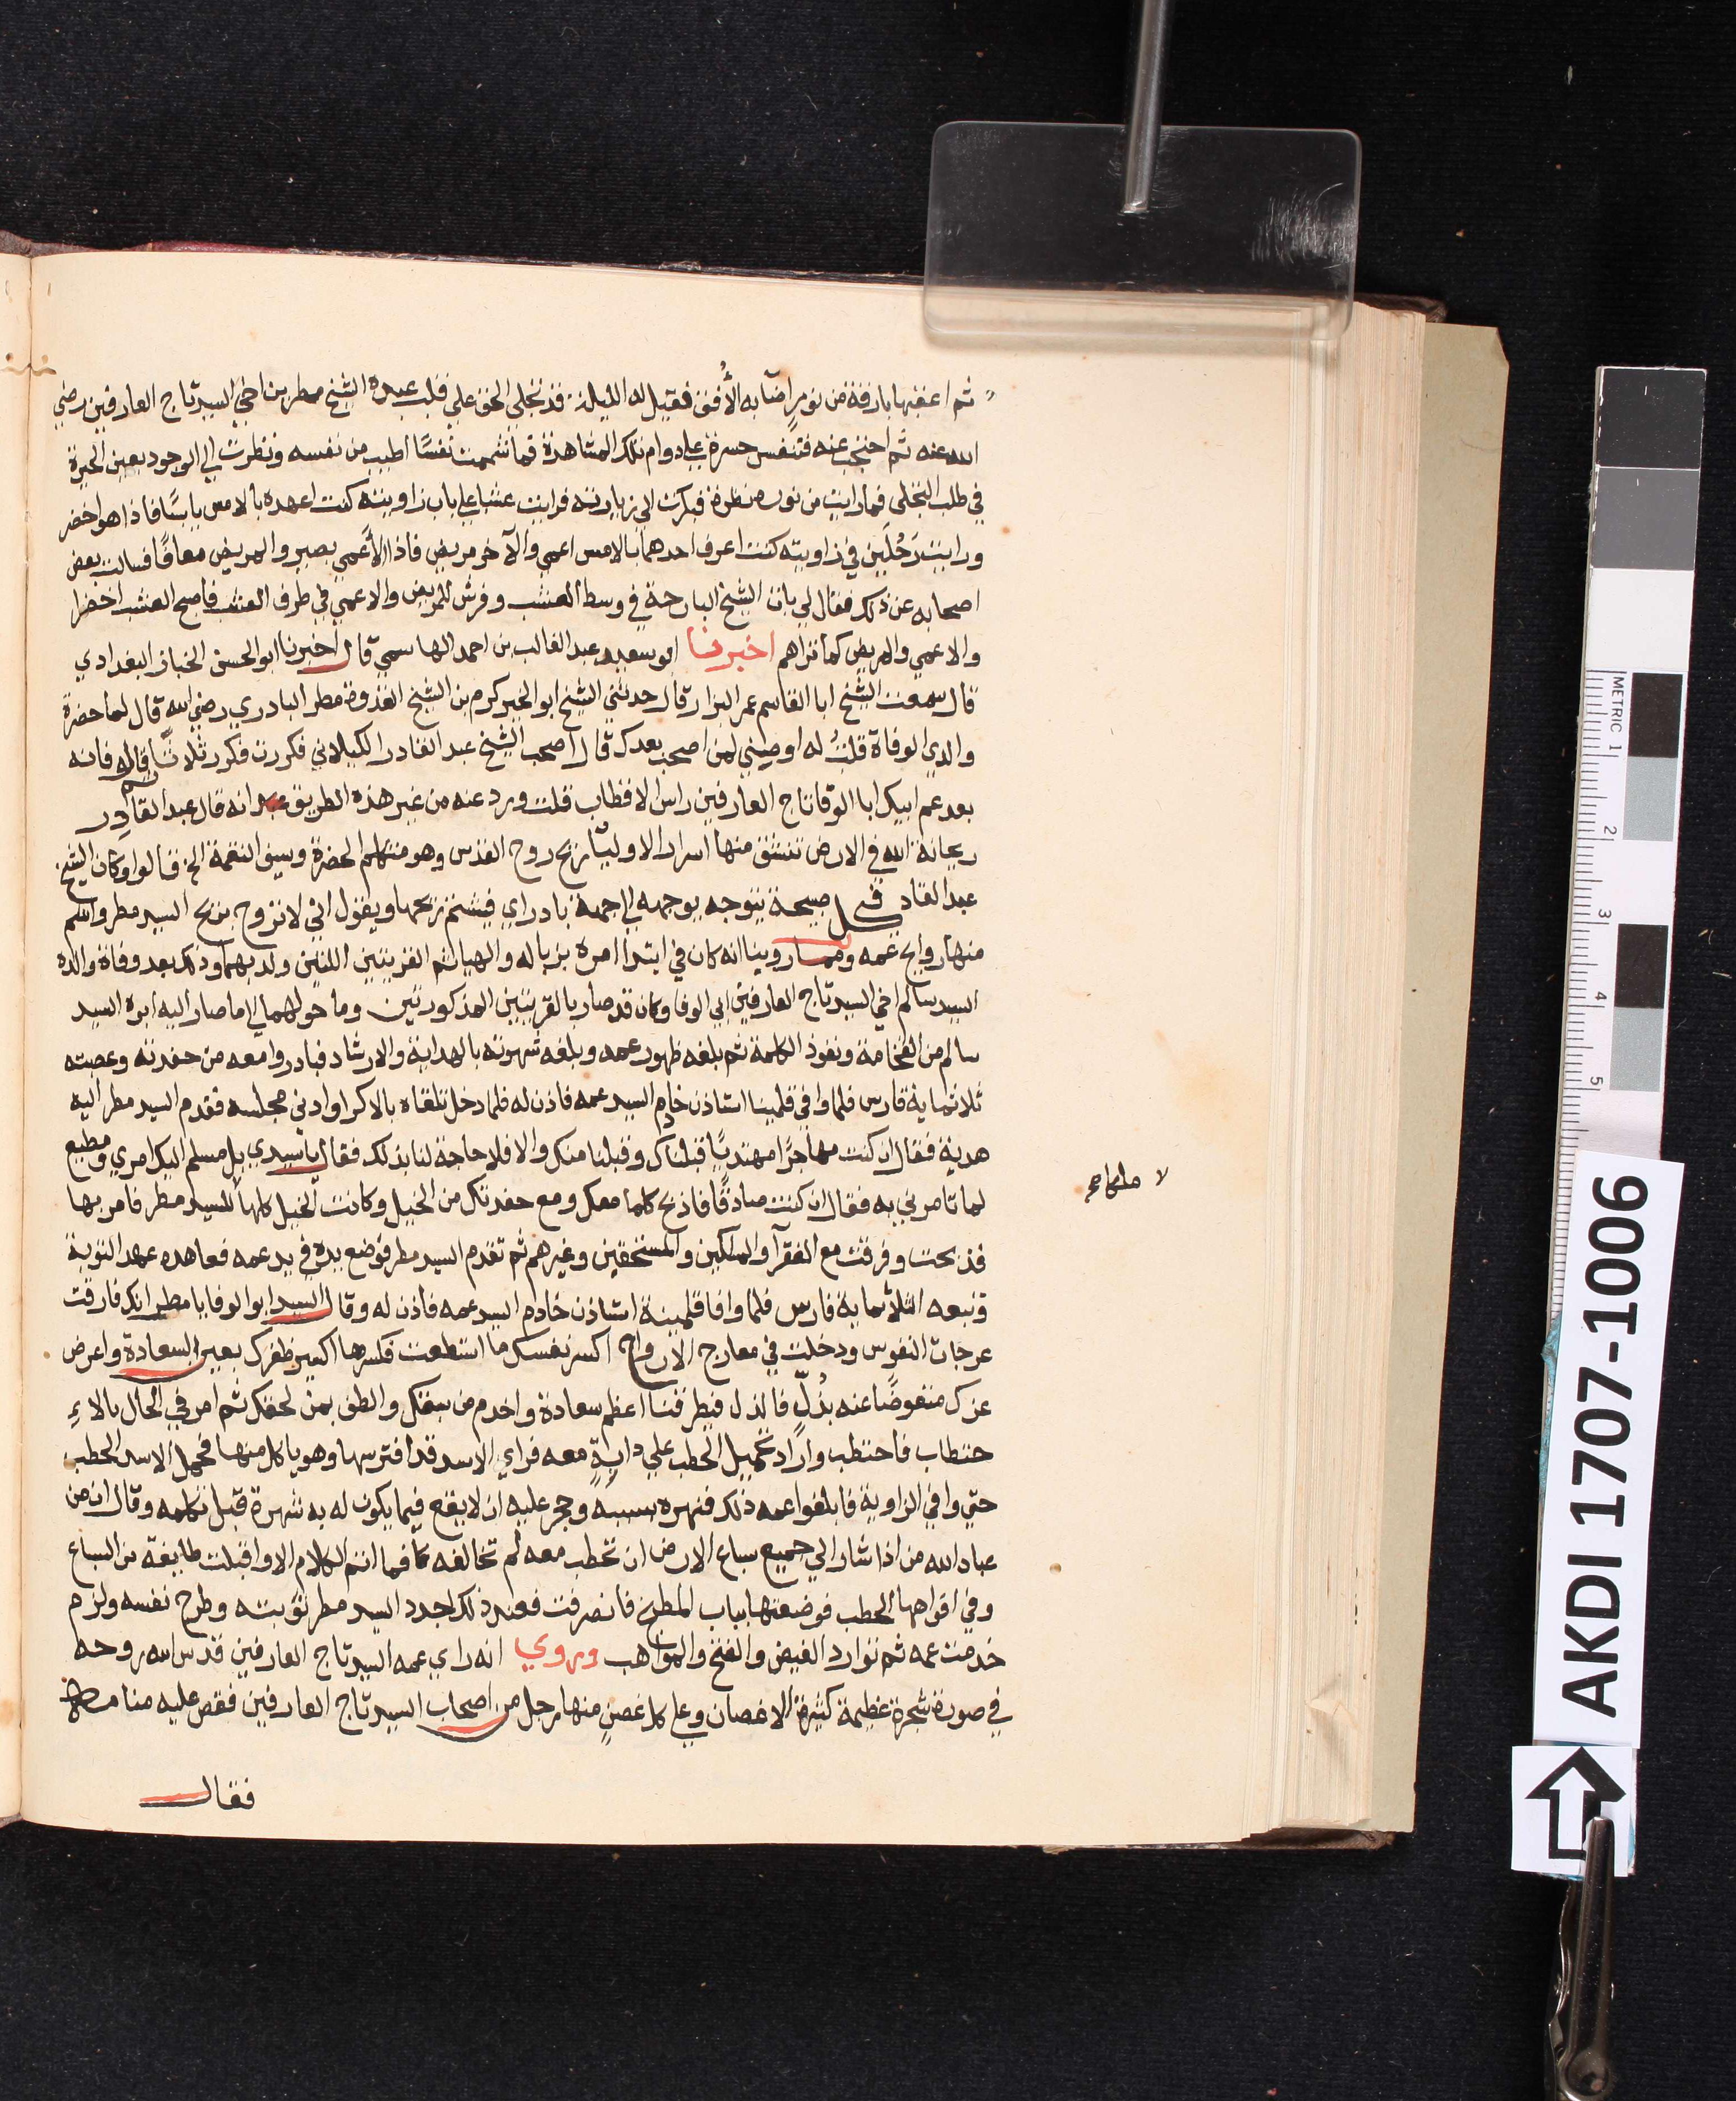 ثم اعقبها بارقة من نورٍ اضآ به الأُفق فقيل له الليلة قد تجلي الحق علي قلب عبده الشيخ مطر بن اخي السيد تاج العارفين رضي
الله عنه ثم احتجب عنه فتنفس حسرة علي دوام تلك المشاهدة فما شممت نفسًا اطيب من نفسه ونظرت الي الوجود بعين الحيرة
في طلب التجلي فما رايت من نوره نظرة فبكرت الي زيارته فرايت عشبا علي باب زاويته كنت اعهده بالامس يابسًا فاذا هو اخضر
ورايت رَجُلَين في زاويته كنت اعرف احدهما بالامس اعمي والآخر مريض فاذا الأعمي بصير والمريض معافًا فسالت بعض
اصحابه عن ذلك فقال لي بات الشيخ البارحة في وسط العشب وفرش للمريض والاعمي في طرف العشب فاصبح العشب اخضرا
والاعمي والمريض كما تراهم اخبرنا ابو سعيد عبد الغالب بن احمد الهاسمي قال اخبرنا ابو الحسن الخباز البغدادي
قال سمعت الشيخ ابا القاسم عمر البزار قال حدثني الشيخ ابو الخير كرم بن الشيخ القدوة مطر البادري رضي الله قال لما حضرة
والدي الوفاة قلتُ له اوصيني لمن اصحب بعدك قال اصحب الشيخ عبد القادر الكيلاني فكررت فكرر ثلاثًا ثم قال له فانه
بعد عم ابيك ابا الوفا تاج العارفين راس الاقطاب قلت ورد عنه من غير هذه الطريق انه قال عبد القادر
ريحانة الله في الارض تنشق منها اسرار الاوليآ ريح روح القدس وهو متكلم الحضرة وسيف النقمة الخ قالوا وكان الشيخ
عبد القاد في كل صبيحة يتوجه بوجهه الي جهة بادراي فيشتم ريحها ويقول اني لا تروح بريح السيد مطر واشم
منها روايح عمه ومما روينا انه كان في ابتدأ امره بزباله والهيار القريتين اللتين ولد بهما وذلك بعد وفاة والده
السيد سالم اخي السيد تاج العارفين ابي الوفا وكان قد صار بالقريتين المذكورتين وما حولهما الي ما صار اليه ابوه السيد
سالم من الفخامة ونفوذ الكلمة ثم بلغه ظهور عمه وبلغه شهرته بالهداية والارشاد فبادر وامعه من حفدته وعصبته
ثلاثماية فارس فلما وافي قلمينا استاذن خادم السيد عمه فاذن له فلما دخل تلقاه بالاكرا وادني مجلسه فقدم السيد مطر اليه
هدية فقال ان كنت مهاجرًا مهتديًا قبلناك وقبلنا منك والا فلا حاجة لنا بذلك فقال ياسيدي بل مسلم اليك امري ومطيع
لما تامرني به فقال ان كنت صادقًا فاذبح كلما معك ومع حفدتك من الخيل وكانت الخيل كلها للسيد مطر فامر بها
فذبحت وفرقت مع الفقرآ والمسكين والمستحقين وغيرهم ثم تقدم السيد مطر فوضع يده في يد عمه فعاهده عهد التوبة
وتبعه الثلاثماية فارس فلما وافا قلمينة استاذن خادم السيد عمه فاذن له وقال السيد ابو الوفا يا مطر انك فارقت
عرجات النفوس ودخلت في معارج الارواح اكسر نفسك ما استطعت فكسرها اكسير ظفرك بعين السعادة واعرض
عزك متعوضًا عنه بذُلٍ فالذل فيطرقنا اعظم سعادة واخدم من سبقك والطف بمن لحقك ثم امر في الحال بالا
حتطاب فاحتطب واراد تحميل الحطب علي دابةٍ معه فراي الاسد قد افترسها وهو ياكل منها فحمل الاسد الحطب
حتي وافي الزاوية فابلغوا عمه ذلك فنهره بسببه وحجر عليه ان لا يقع فيما يكون له به شهرة قبل تكلمه وقال ان من
عباد الله من اذا شار الي جميع سباع الارض ان تحطب معه لم تخالفه كما فما اتم الكلام الا واقبلت طايفة من السباع
وفي افواهها الحطب فوضعتها بباب المطبخ فانصرفت فعند ذلك جدد السيد مطر توبته وطرح نفسه ولزم
خدمت عمه ثم توارد الفيض والفتح والمواهب وروي انه راي عمه السيد تاج العارفين قدس الله روحه
في صورة شجرة عظيمة كثيرة الاغصان وعلي كل غصنٍ منها رجل من اصحاب السيد تاج العارفين فقص عليه منامه
فقال